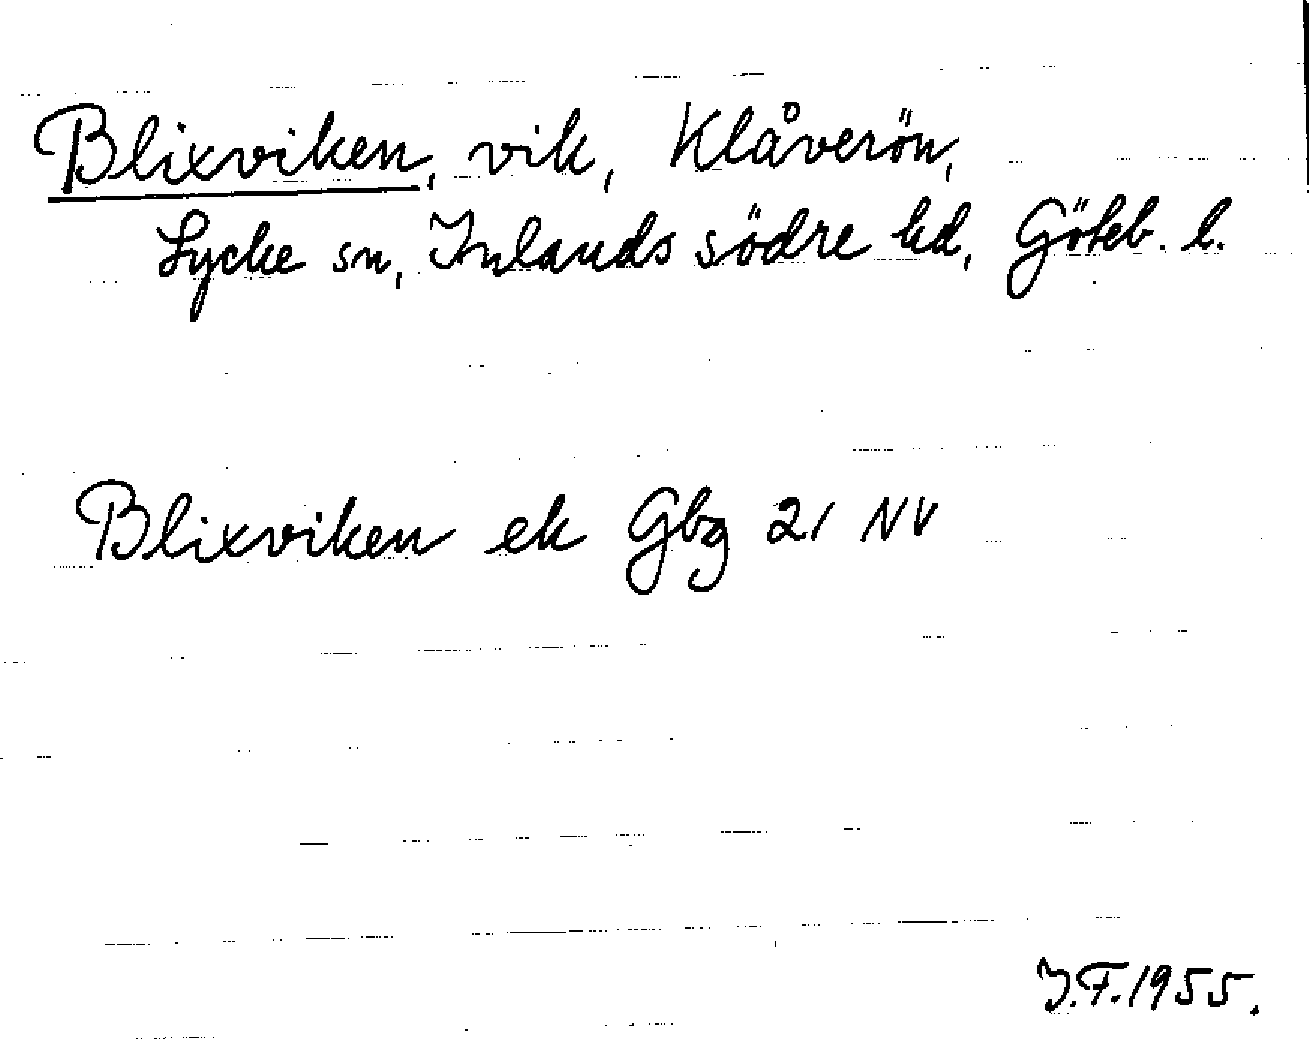 Blixviken, vik, Klåverön,
Lycke sn, Inlands södre hd, Göteb. l.
Blixviken ek Gbg 21 NV
I.F. 1955.